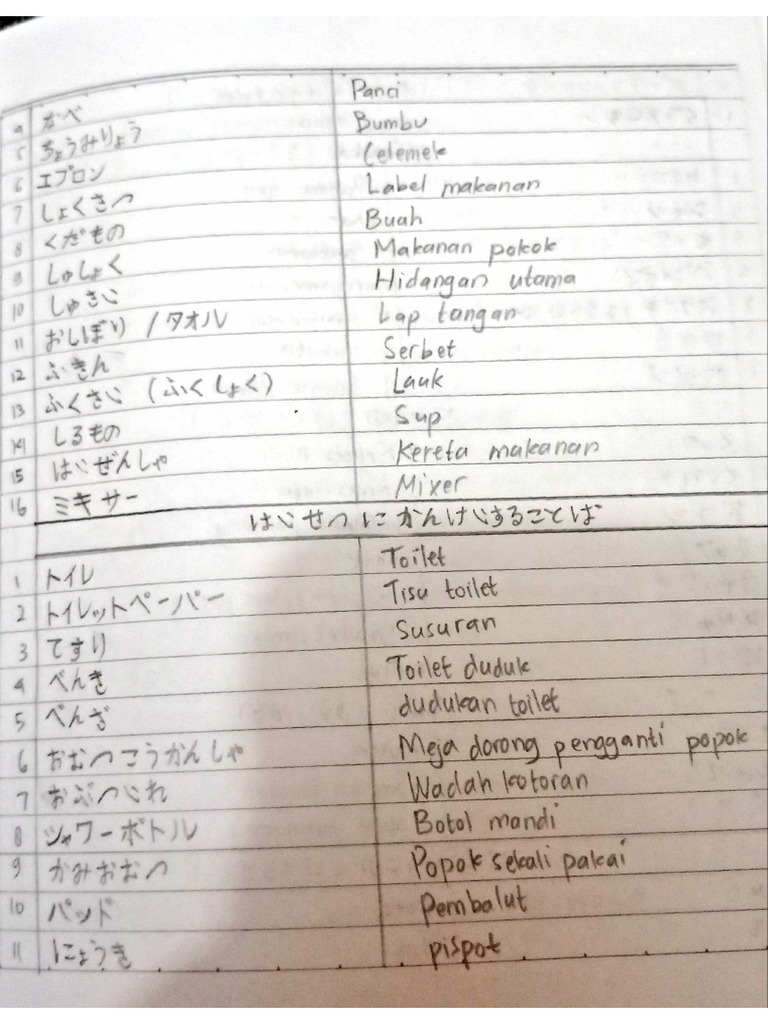 4 なべ Panci
5 ちょうみりょう Bumbu
6 エプロン Celemek
7 しょくさつ Label makanan
8 くだもの Buah
9 しゅしょく Makanan pokok
10 しゅさい Hidangan utama
11 おしぼり / タオル Lap tangan
12 ふきん Serbet
13 ふくさい (ふくしょく) Lauk
14 しるもの Sup
15 はいぜんしゃ Kereta makanan
16 ミキサー Mixer
はいせつ に かんけいすることば
1 トイレ Toilet
2 トイレットペーパー Tisu toilet
3 てすり Susuran
4 べんき Toilet duduk
5 べんざ dudukan toilet
6 おむつこうかんしゃ Meja dorong pengganti popok
7 おぶついれ Wadah kotoran
8 シャワーボトル Botol mandi
9 かみおむつ Popok sekali pakai
10 パッド Pembalut
11 にょうき pispot